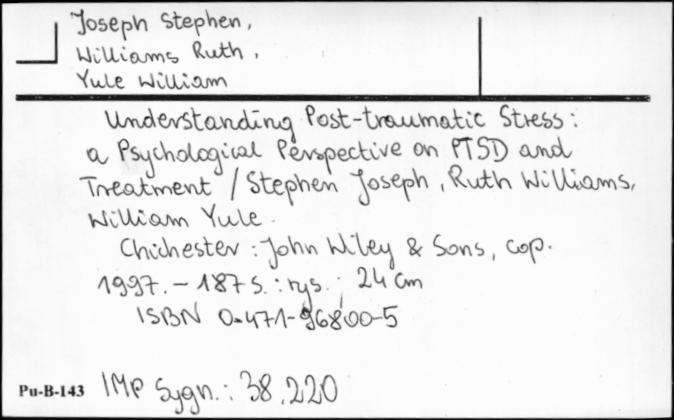 Joseph Stephen,
Williams Ruth,
Yule William
Understanding Post-traumatic Stress:
a Psychological Perspective on PTSD and
Treatment / Stephen Joseph, Ruth Williams,
William Yule.
Chichester: John Wiley & Sons, cop.
1997. - 187 s.: rys.; 24 cm
ISBN 0-471-96800-5
Pu-B-143 IMP Sygn.: 38.220